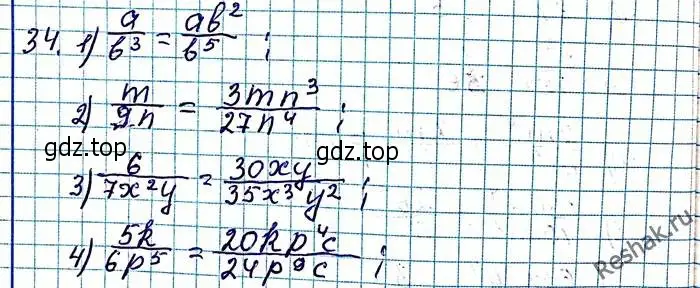 34. 1) a/b³ = ab²/b⁵ ;
2) m/9n = 3mn³/27n⁴ ;
gdz.top gdz.top
3) 6/7x²y = 30xy/35x³y² ;
4) 5k/6p⁵ = 20kp⁴c/24p⁹c ;
Reshak.ru